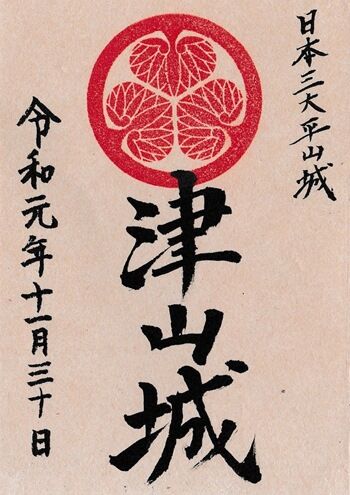 日本三大平山城
津山城
令和元年十一月三十日